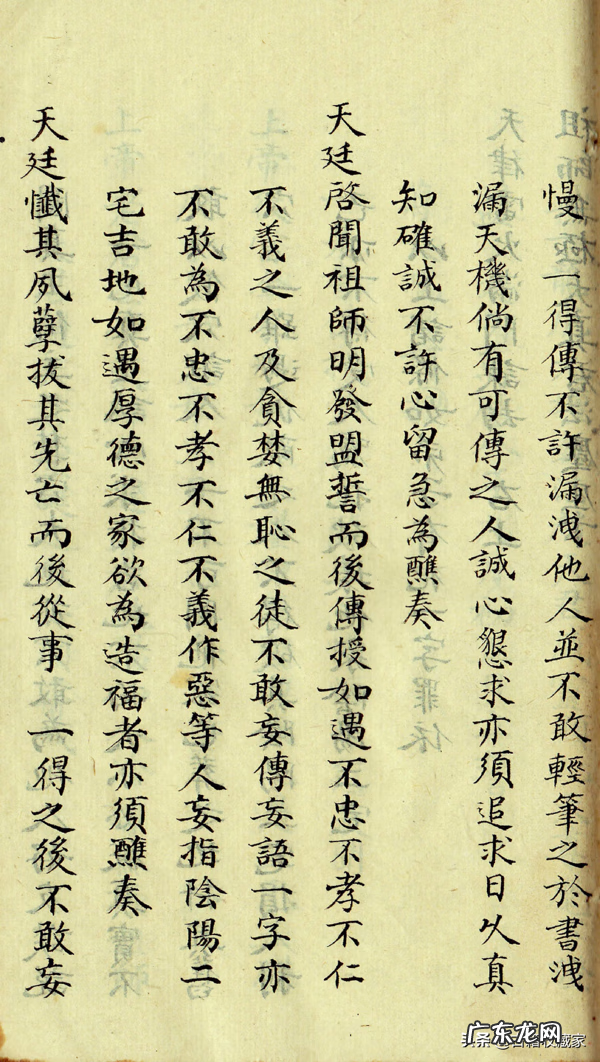 慢 一得傳不許漏洩他人並不敢輕筆之於書洩
漏天機倘有可傳之人誠心懇求亦須追求日久真
知確誠不許心留急為醮奏
天廷啓聞祖師明發盟誓而後傳授如遇不忠不孝不仁
不義之人及貪婪無恥之徒不敢妄傳妄語一字亦
不敢為不忠不孝不仁不義作惡等人妄指陰陽二
宅吉地如遇厚德之家欲為造福者亦須醮奏
天廷懺其夙孽拔其先亡而後從事 一得之後不敢妄
广东龙网